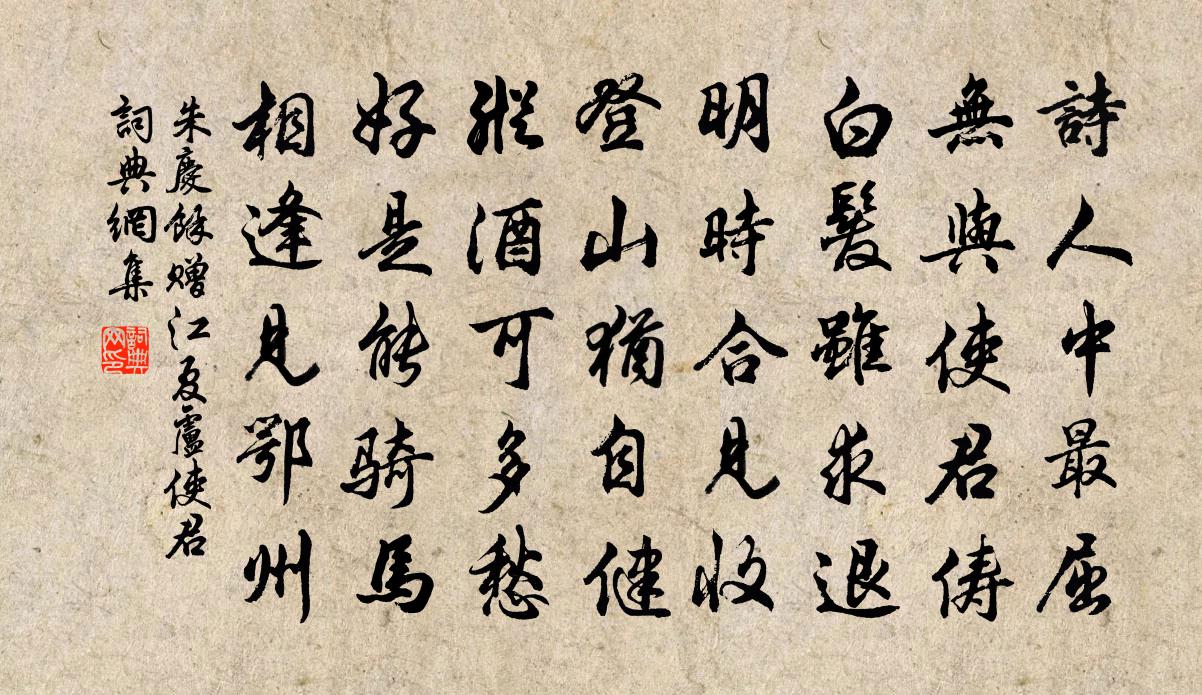 詩人中最屈
無與使君儔
白髮雖求退
明時合見收
登山猶自健
縱酒可多愁
好是能騎馬
相逢見鄂州
朱慶餘赠江夏盧使君
詞典網集
詞典网印